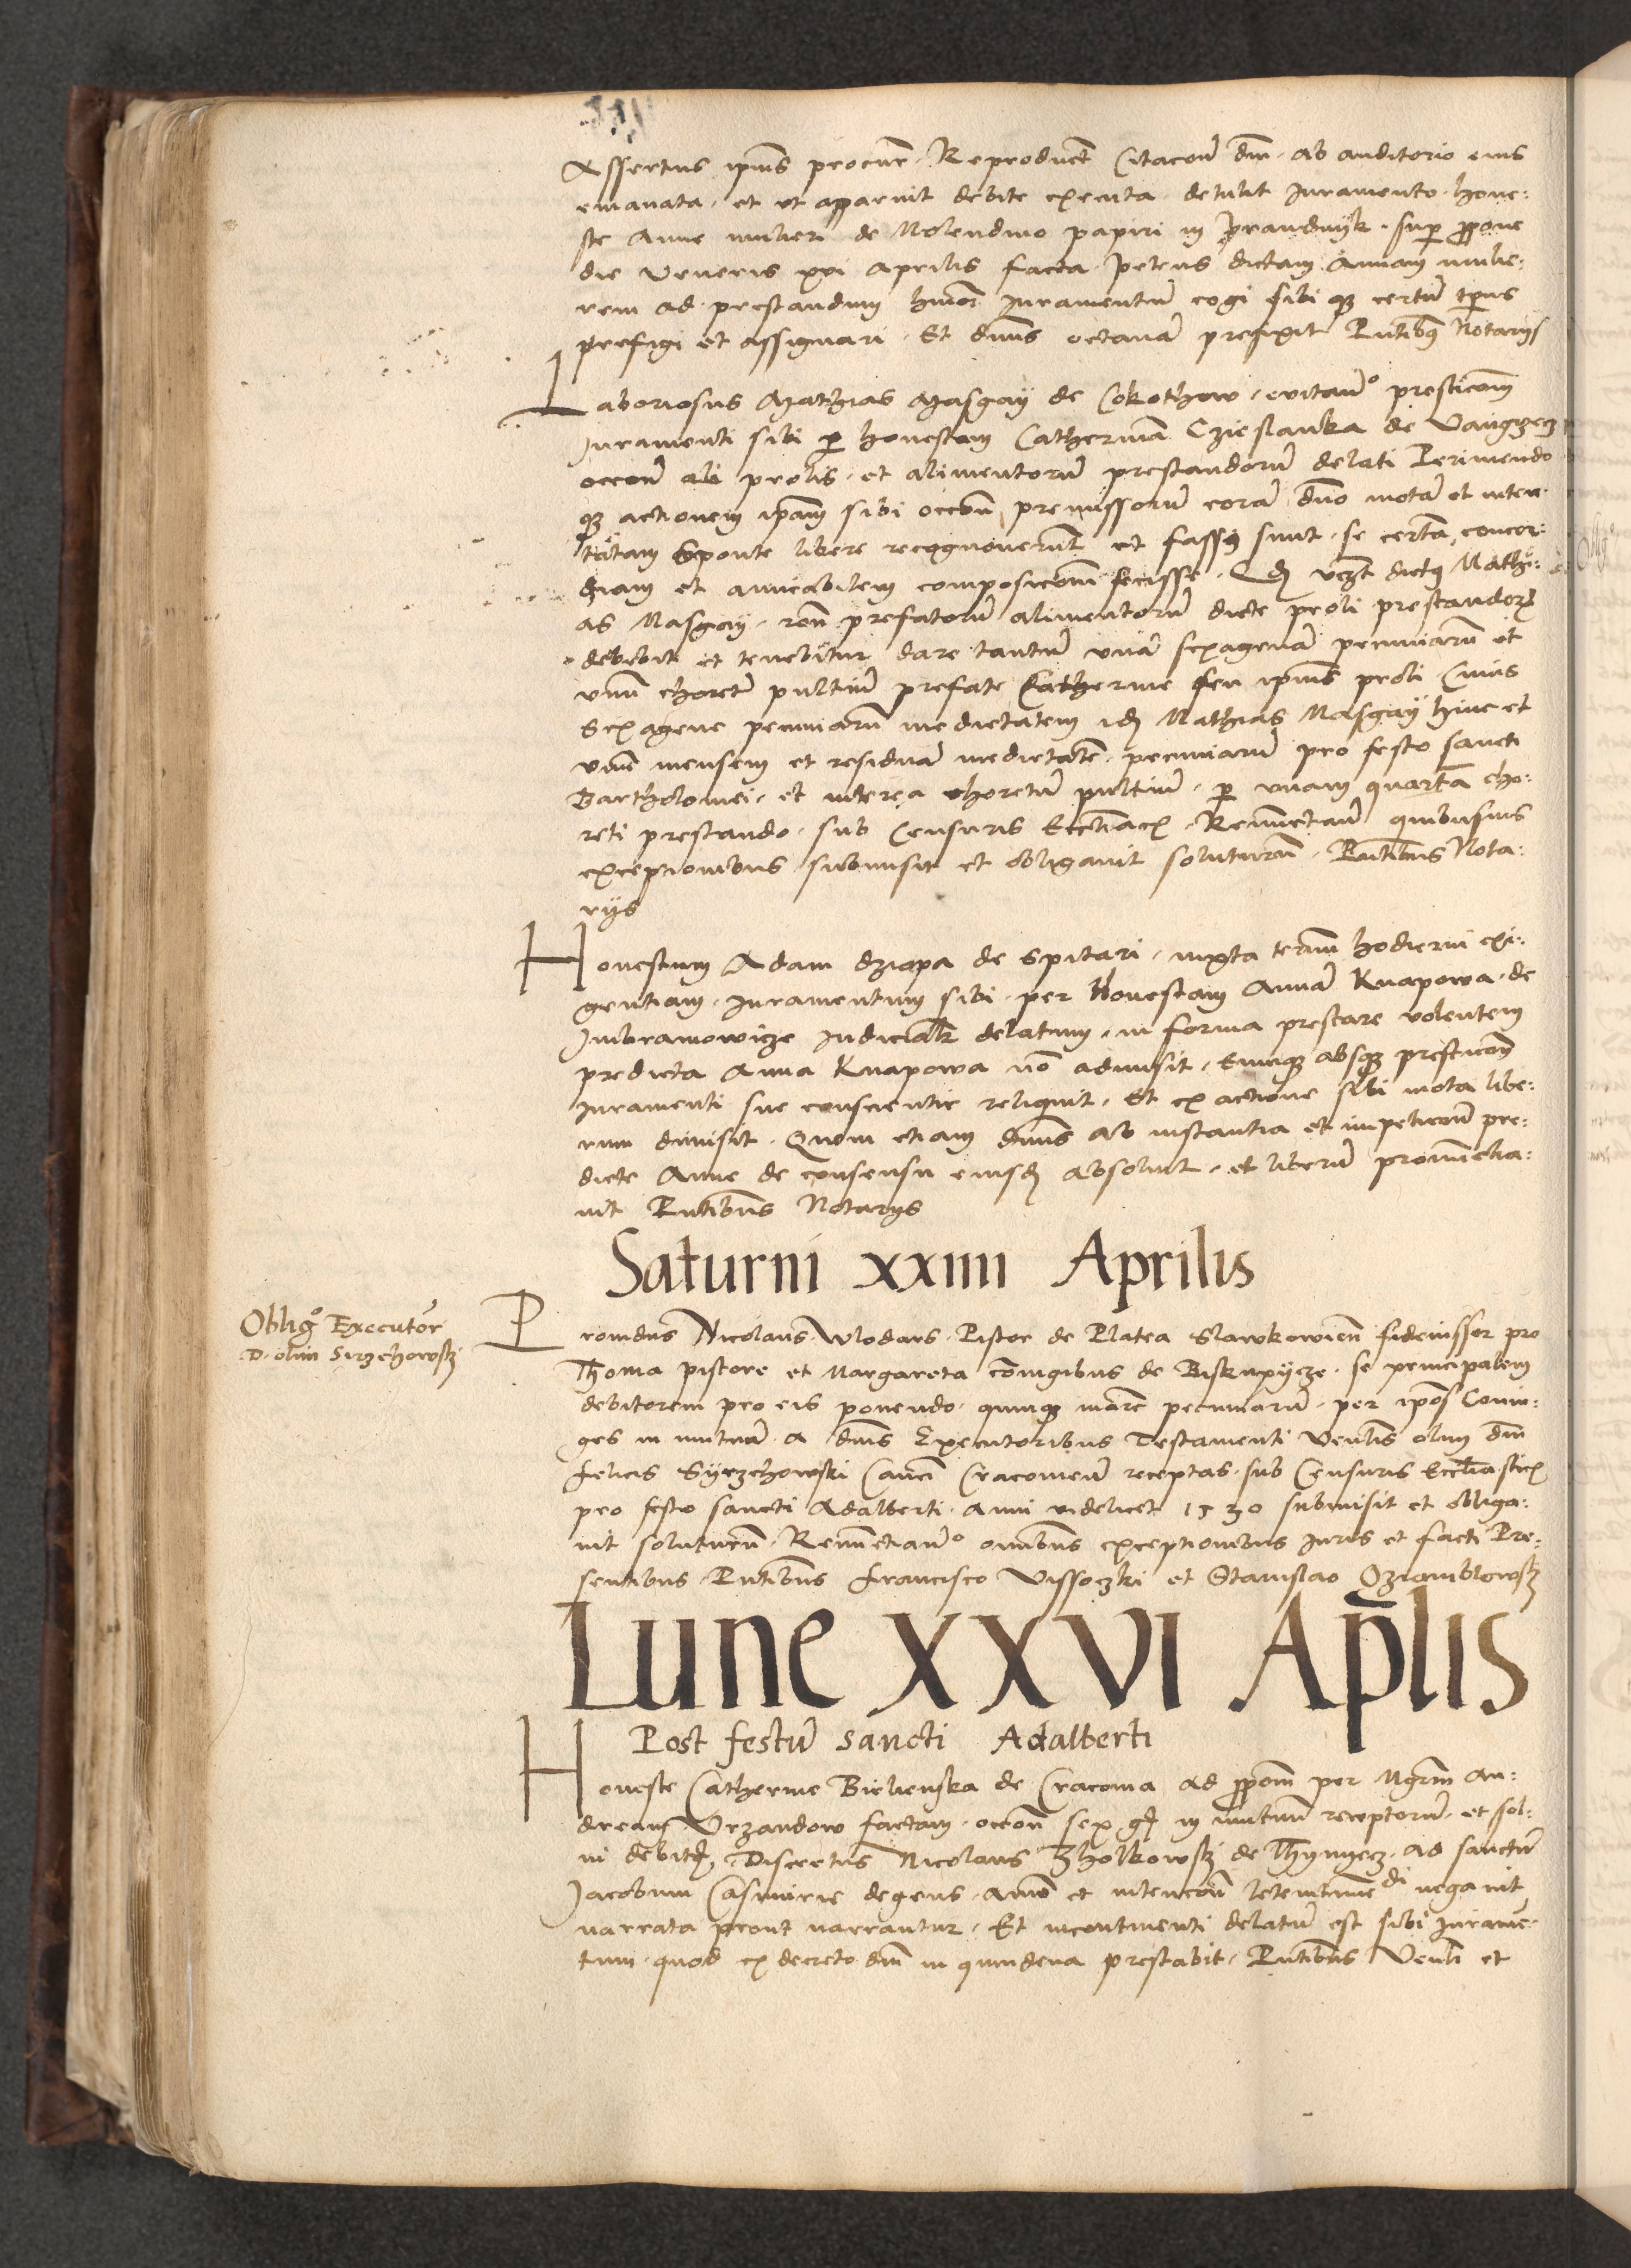 Assertus ipius procur. Reproduct Citacon dni. ab auditorio eius
emanata. et ut apparuit debite executa. detulit Juramento. hone:
ste Anne mulieri de Molendino papiri in Prandnyk. sup ppone
die Veneris xvi Aprilis facta. petens dictam Annam mulie:
rem ad prestandum hmoi Juramentum cogi sibi q certu tpus
prefigi et assignari. Et dnus octava prefixit Pntibus Notarijs
Laboriosus Mathias Masgay de Cokothow. evitando presticom
Juramenti sibi p honestam Catherina Czieslanka de
occone prolis. et alimentorum prestandorum delati Perimendo
q actionem ipam sibi occone premissorum cora dno mota et inten
tatam Sponte libere recognoverunt et fassi sunt. se certa concor:
diam et amicabilem composicom fecisse. Qd vzt dictus Mathi:
as Masgay. rone prefatorum alimentorum dicte proli prestandor
debebit et tenebitur dare tantum una sexagena pecuniaru et
unu choretu pultium prefate Catherine seu ipius proli Cuius
Sexagene pecuniaru medietatem id Mathias Masgay hinc et
unu mensem et residua medietate pecuniaru pro festo sancti
Bartholomei. et interea choretu pultium. p unam quarta cho:
reti prestando. sub Censuris Ecclesiacis. Renunctian quibusuis
exceptionibus submisit et obligavit soluturu. Pntibus Nota:
rijs
Honestum Adam dziapa de Spitari. iuxta termi hodierni exi:
gentiam. Juramentum sibi per honestam Anna Knapowa de
Imbramowicze Judicialr delatum. in forma prestare volentem
predicta Anna Knapowa no admisit. Eumq absq presticom
Juramenti sue consciencie reliquit. Et ex actione sibi mota libe:
rum dimisit. Quem etiam dnus ab instantia et impeticom pre:
dicte Anne de consensu eiusd absolvit. et liberu pronunctia:
vit Pntibus Notarijs
Saturni xxiiii Aprilis
Obligo Executor
D. olim Sirzchowskj
Providus Nicolaus Wlodars. Pistor de Platea Slawkowien fideiussor pro
Thoma pistore et Margareta coniugibus de Biskupycze. se principalem
debitorem pro eis ponendo. quinq marc pecuniaru. per ipos Coniu:
ges in mutua a dnis Executoribus Testamenti Venlis olim dni
Felicis Syrzchowski Canci Cracovien receptas. sub Censuris Eccliasticis
pro festo sancti Adalberti. anni videlicet 1530 submisit et obliga:
vit soluturu. Renunctiando omibus exceptionibus Juris et facti Pre:
sentibus Pntibus Francisco Vissoczki et Stanislao
Lune XXVI Aplis
Post festu Sancti Adalberti
Honeste Catherine Bielienska de Cracovia ad ppom per Mgrm An:
dream Vrzandow factam. occone sex gr in mutuu receptoru. et sol:
vi debit. Discretus Nicolaus Zholkowskj de Thynyecz. ad sanctu
Jacobum Casimirie degens. anio et intencon litem contestandi negavit
narrata prout narrantur. Et incontinenti delatu est sibi Jurame:
tum. quod ex decreto dni in quindena prestabit. Pntibus Venli et